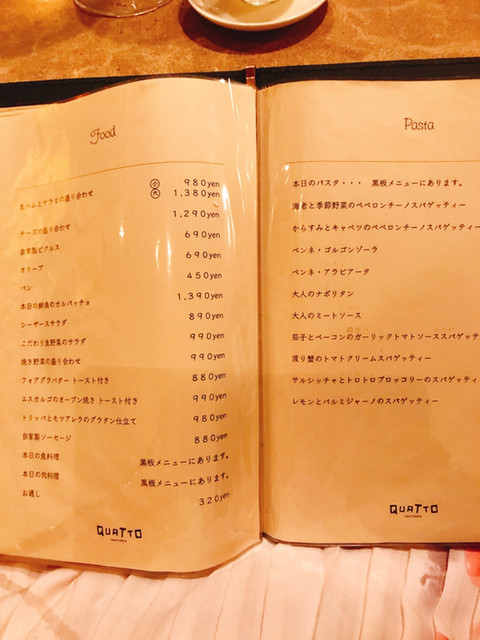 Food
生ハムとサラミの盛り合わせ 小 980yen
大 1,380yen
チーズの盛り合わせ 1,290yen
自家製ピクルス 690yen
オリーブ 690yen
パン 450yen
本日の鮮魚のカルパッチョ 1,390yen
シーザーサラダ 890yen
こだわり生野菜のサラダ 990yen
焼き野菜の盛り合わせ 990yen
フォアグラバター トースト付き 880yen
エスカルゴのオーブン焼き トースト付き 990yen
トリッパとモツアレラのグラタン仕立て 980yen
自家製ソーセージ 880yen
本日の魚料理 黒板メニューにあります。
本日の肉料理 黒板メニューにあります。
お通し 320yen
QUATTO
Pasta
本日のパスタ・・・ 黒板メニューにあります。
海老と季節野菜のペペロンチーノスパゲッティー
からすみとキャベツのペペロンチーノスパゲッティー
ペンネ・ゴルゴンゾーラ
ペンネ・アラビアータ
大人のナポリタン
大人のミートソース
茄子とベーコンのガーリックトマトソーススパゲッティー
渡り蟹のトマトクリームスパゲッティー
サルシッチャとトロトロブロッコリーのスパゲッティ
レモンとパルミジャーノのスパゲッティー
QUATTO